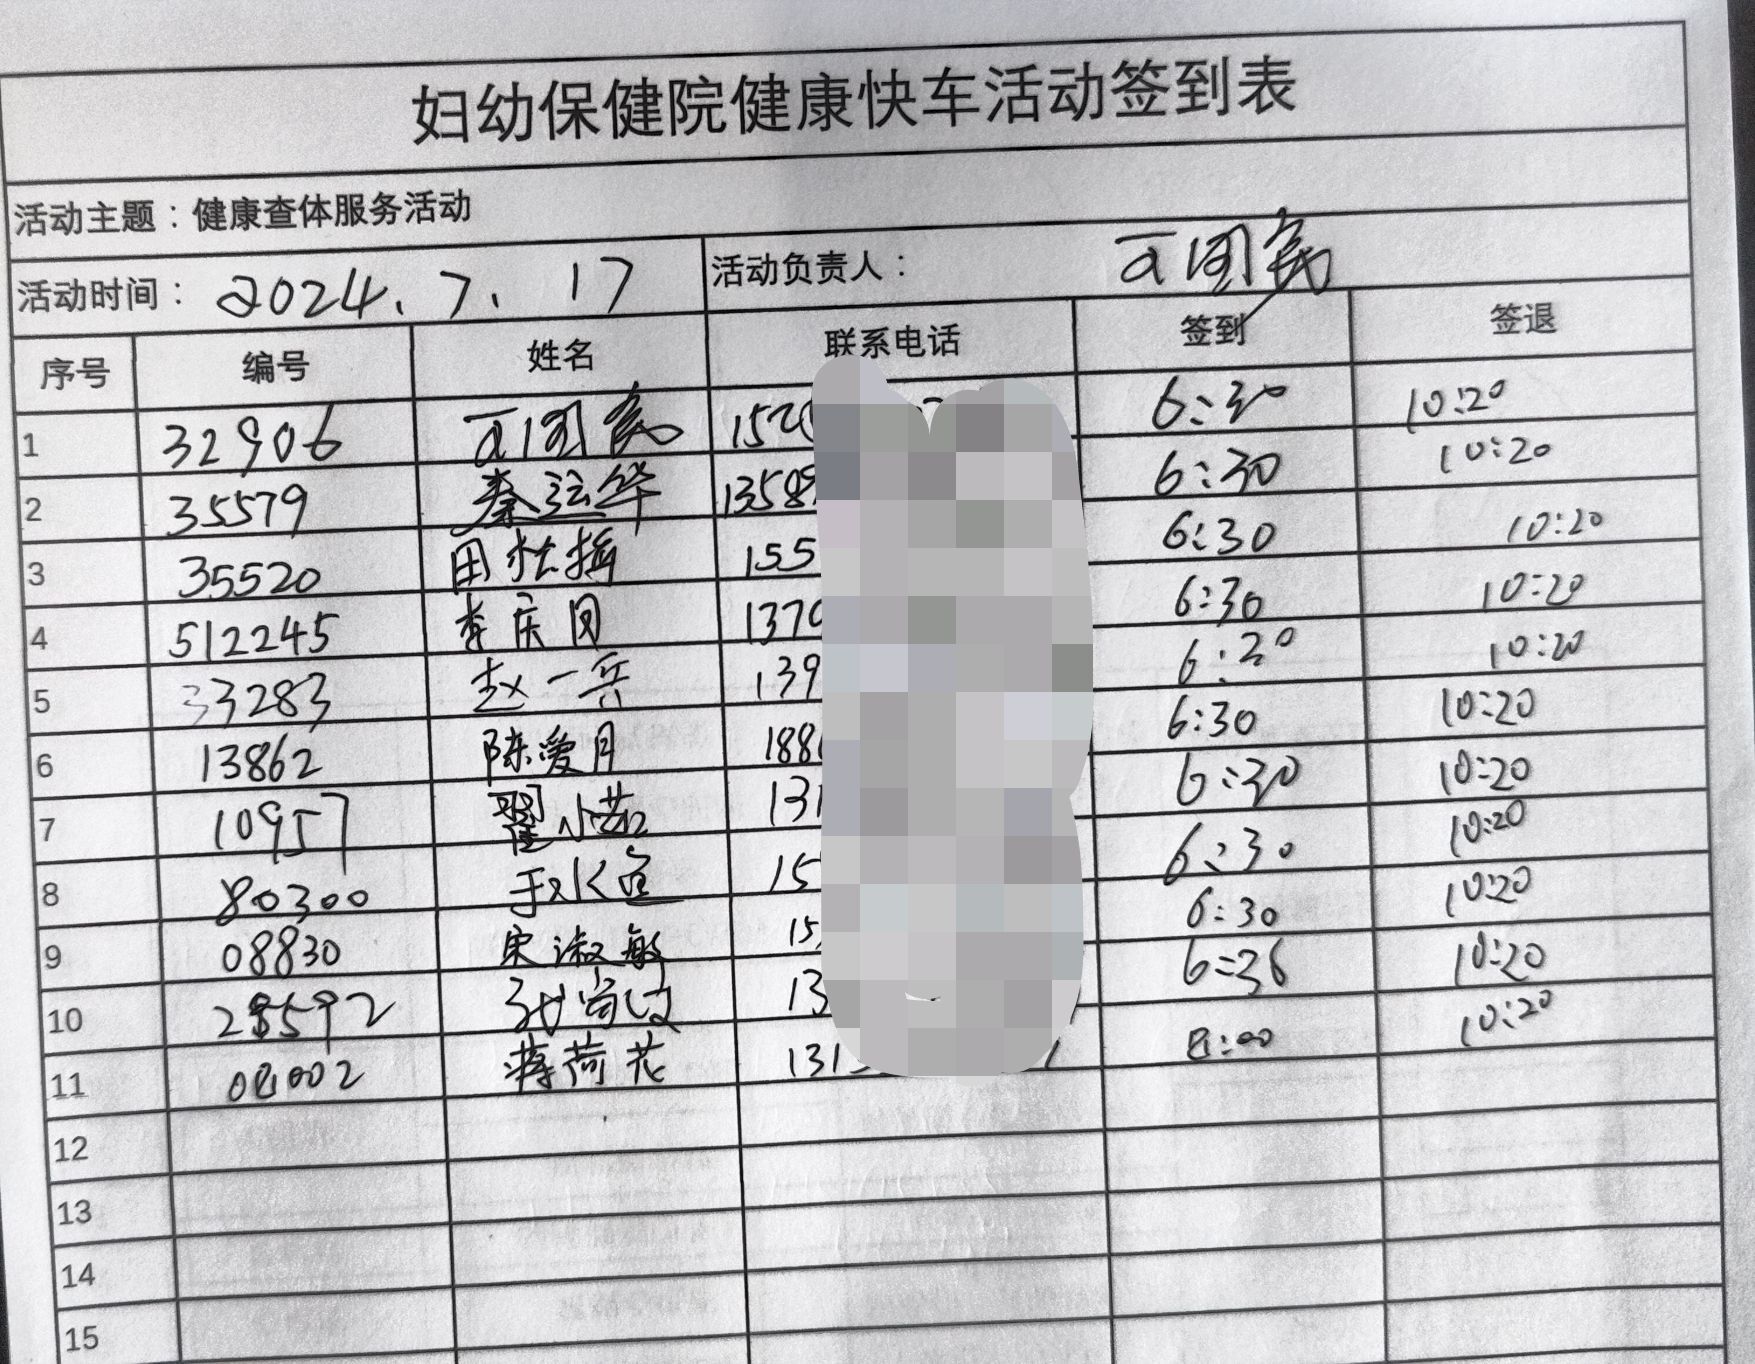 妇幼保健院健康快车活动签到表
活动主题：健康查体服务活动
活动时间：2024.7.17 活动负责人：
序号 编号 姓名 联系电话 签到 签退
1 32906 152 6:30 10:20
2 35579 秦泓华 1358 6:30 10:20
3 35520 田 155 6:30 10:20
4 512245 李庆图 1370 6:30 10:20
5 33283 赵一兵 139 6:30 10:20
6 13862 陈爱月 188 6:30 10:20
7 10957 翟小茹 131 6:30 10:20
8 80300 15 6:30 10:20
9 08830 宋淑敏 15 6:30 10:20
10 13 10:20
11 蒋荷花 131 8:00 10:20
12
13
14
15